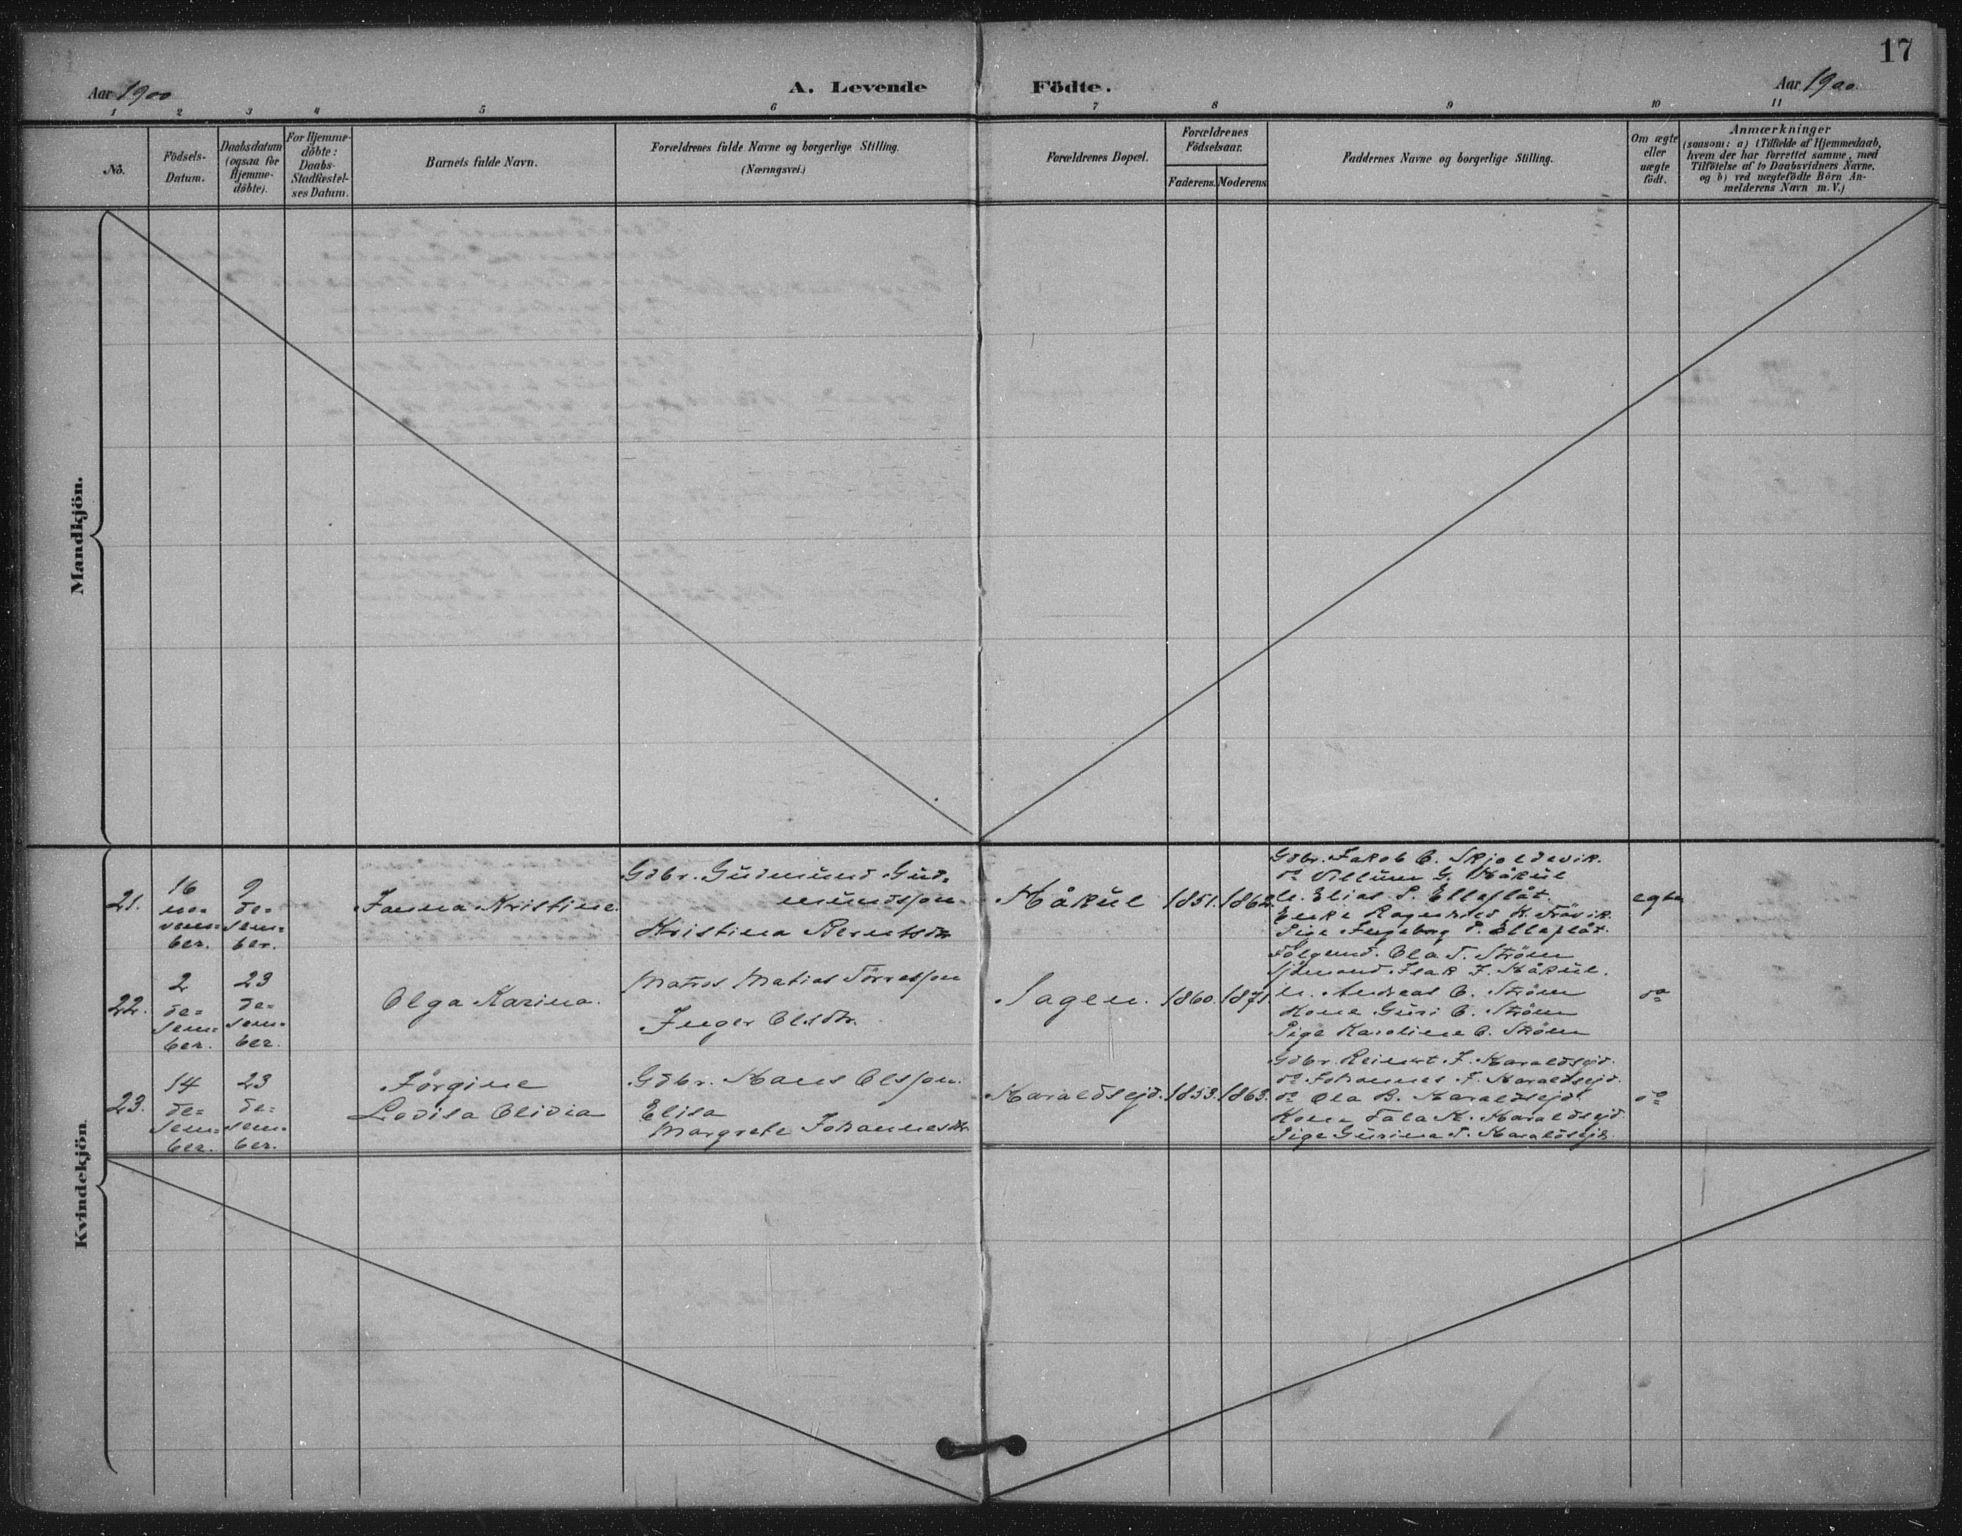 17
Aar 1900
A. Levende Födte.
Aar 1900
1 2 3 4 5 6 7 8 9 10 11
No.
Födsels-
Datum.
Daabsdatum
(ogsaa for
Hjemme-
döbte).
For Hjemme-
döbte:
Daabs-
Stadfæstel-
ses Datum.
Barnets fulde Navn.
Forældrenes fulde Navne og borgerlige Stilling.
(Næringsvei.)
Forældrenes Bopæl.
Forældrenes
Födselsaar.
Faderens. Moderens.
Faddernes Navne og borgerlige Stilling.
Om ægte
eller
uægte
födt.
Anmærkninger
(saasom: a) i Tilfælde af Hjemmedaab,
hvem der har forrettet samme, med
Tilföielse af to Daabsvidners Navne,
og b) ved uægtefödte Börn An-
melderens Navn m. V.)
Mandkjön.
Kvindekjön.
21.
16
no-
vem-
ber.
9
de-
sem-
ber.
Janna Kristine.
Gdbr. Gudmund Gud-
mundsson.
Kristina Berntsdtr.
Håkul
1851. 1862.
Gdbr. Jakob C. Skjoldevik.
do Villum G. Håkul
U. Elias P. Ellaflåt.
Enke Ragnhild K.
Pige Ingeborg P. Ellaflåt.
egte
22.
2
de-
sem-
ber.
23
de-
sem-
ber.
Olga Karina.
Matros Matias Tørresson
Inger Olsdtr.
Sagen.
1860. 1871.
Følgemd. Ola T. Strøm
Sjømand Isak J. Håkul.
U. Andreas O. Strøm
Kone Guri O. Strøm
Pige Karoline O. Strøm
do
23.
14
de-
sem-
ber.
23
de-
sem-
ber.
Jørgine
Lovisa Olivia
Gdbr. Hans Olsson.
Elisa
Margrete Johannesdtr.
Haraldsejd.
1853. 1863.
Gdbr. Reinert J. Haraldsejd.
do Johannes J. Haraldsejd.
do Ola B. Haraldsejd
Kone Tala H. Haraldsejd
Pige Gurina T. Haraldsejd.
do